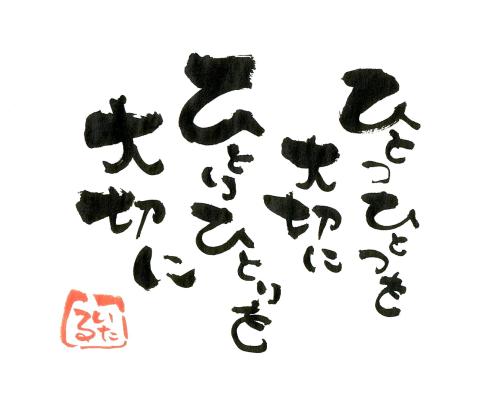 ひとつひとつを
大切に
ひとりひとりを
大切に
いたる